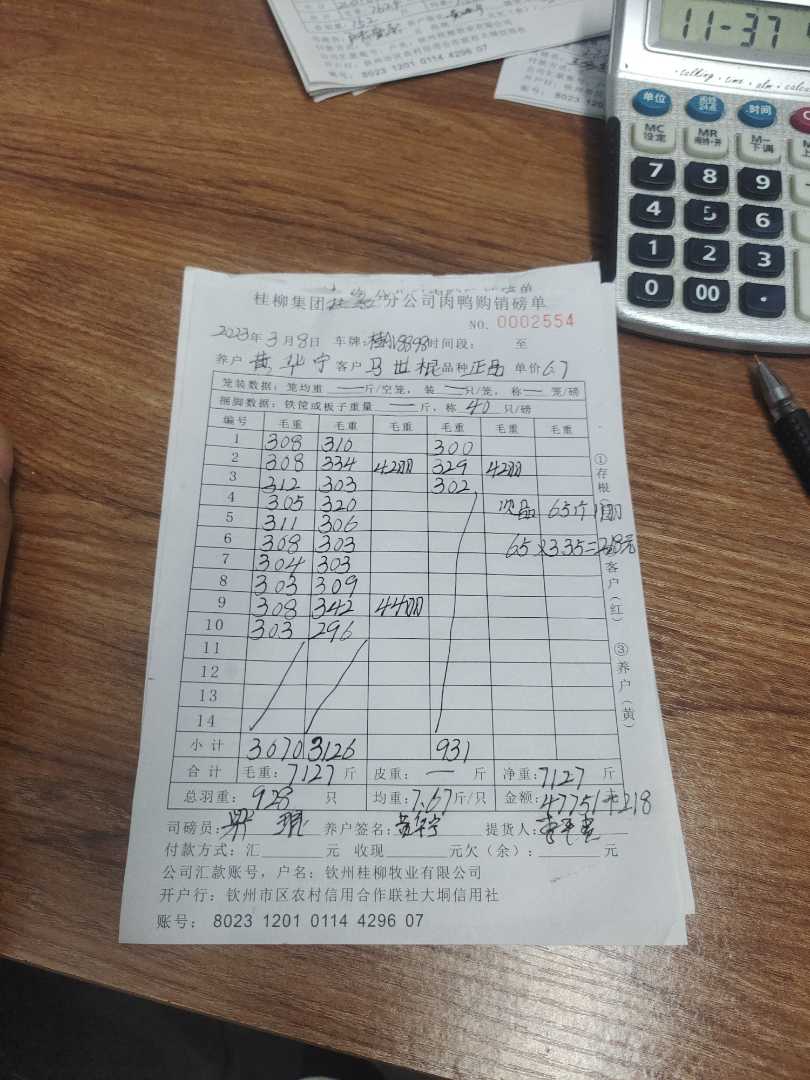 账号: 8023 1201 0114 4296 07
账号: 8023 120
11-37
talking · time · alm · calc
单位
时间
MC 设定
MR
M- 下调
7 8 9
4 5 6
1 2 3
0 00 ·
桂柳集团 分公司肉鸭购销磅单
NO. 0002554
2023年3月8日 车牌: 8898 时间段: 至
养户 黄华宁 客户 马世棍 品种 正品 单价 6.7
笼装数据: 笼均重 — 斤/空笼, 装 — 只/笼, 称 — 笼/磅
捆脚数据: 铁筐或板子重量 — 斤, 称 40 只/磅
编号 毛重 毛重 毛重 毛重 毛重 毛重
1 308 310 300
2 308 334 42only 329 42only
3 312 303 302
4 305 320 次品 65个
5 311 306
6 308 303 65×3.35=218元
7 304 303
8 303 309
9 308 342 44
10 303 296
11
12
13
14
小计 3070 3126 931
合计 毛重: 7127 斤 皮重: — 斤 净重: 7127 斤
总羽重: 928 只 均重: 7.67 斤/只 金额: 47751+218
司磅员: 养户签名: 黄华宁 提货人:
付款方式: 汇 元 收现 元欠(余): 元
公司汇款账号, 户名: 钦州桂柳牧业有限公司
开户行: 钦州市区农村信用合作联社大垌信用社
账号: 8023 1201 0114 4296 07
①存根
客户(红)
③养户(黄)